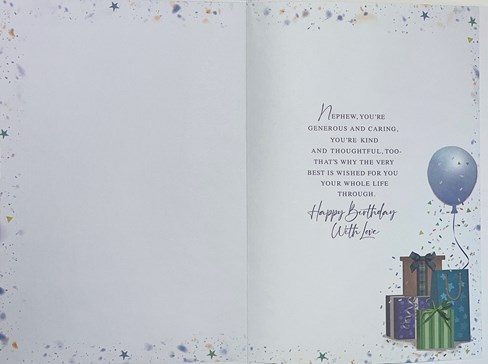 NEPHEW, YOU'RE
GENEROUS AND CARING,
YOU'RE KIND
AND THOUGHTFUL, TOO-
THAT'S WHY THE VERY
BEST IS WISHED FOR YOU
YOUR WHOLE LIFE
THROUGH.
Happy Birthday
With Love